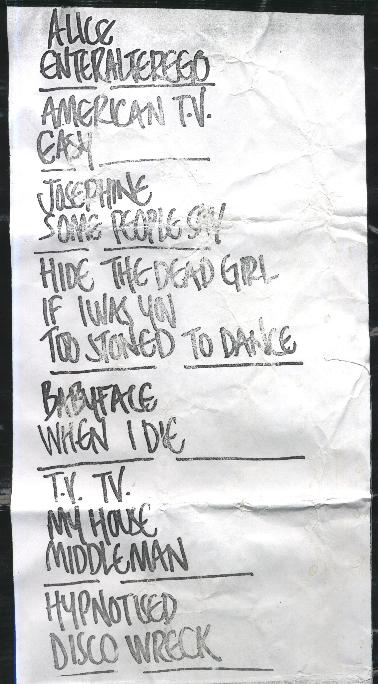 ALICE
ENTERALTEREGO
AMERICAN T.V.
EASY
JOSEPHINE
SOME PEOPLE SAY
HIDE THE DEAD GIRL
IF I WAS YOU
TOO STONED TO DANCE
BABYFACE
WHEN I DIE
T.V. TV.
MY HOUSE
MIDDLEMAN
HYPNOTISED
DISCO WRECK